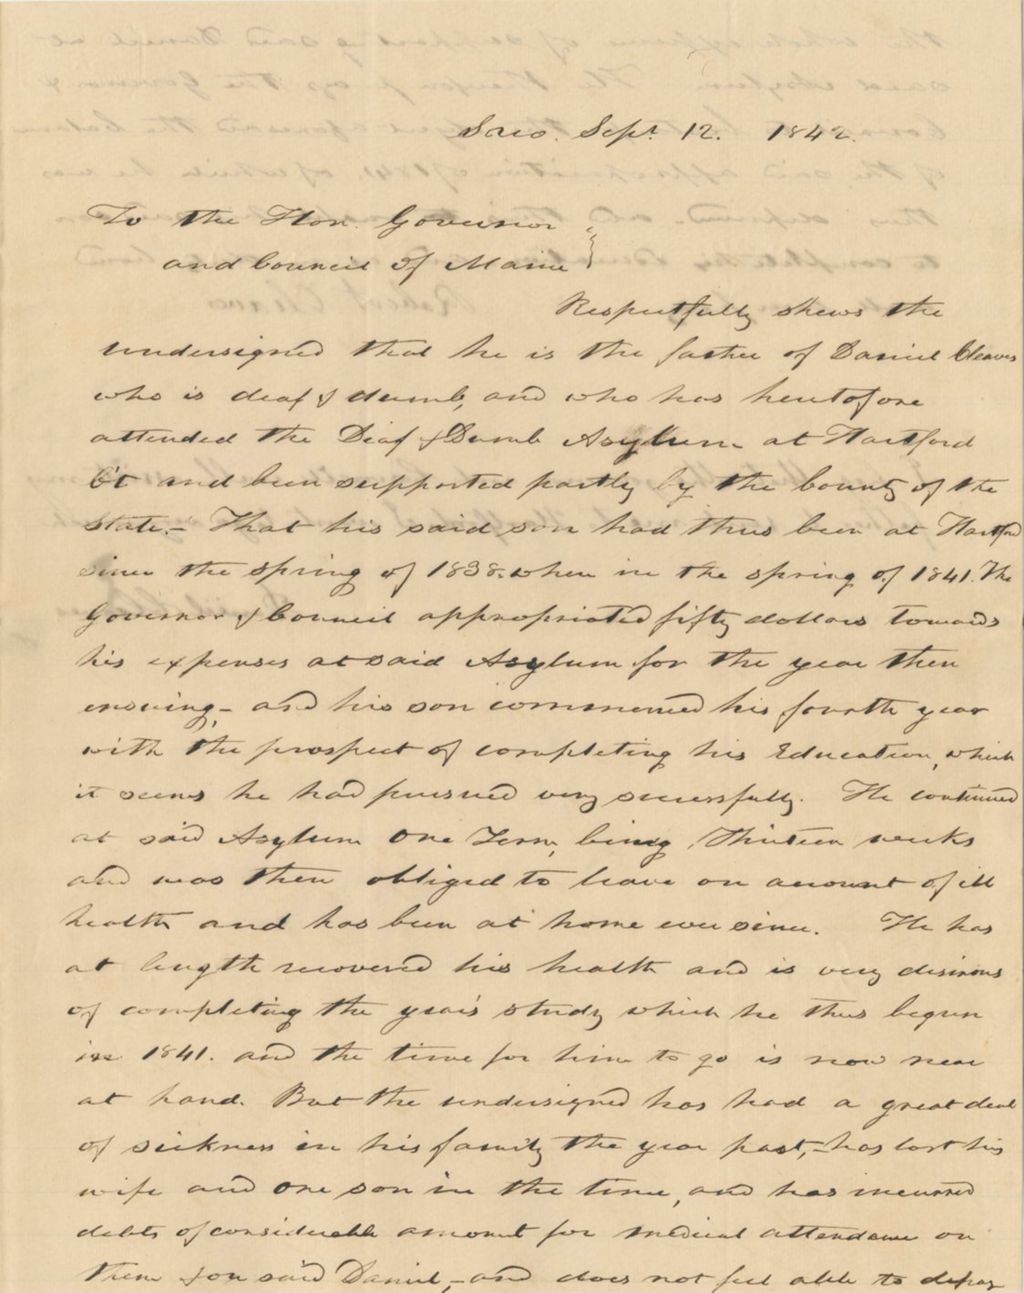 Saco. Sept. 12. 1842.
To the Hon. Governor
and Council of Maine
Respectfully shews the
undersigned that he is the father of Daniel Cleaves
who is deaf & dumb, and who has heretofore
attended the Deaf & Dumb Asylum at Hartford
Ct and been supported partly by the bounty of the
State.- That his said son had thus been at Hartford
since the spring of 1838. when in the spring of 1841. The
Governor & Council appropriated fifty dollars towards
his expenses at said Asylum for the year then
ensuing,- and his son commenced his fourth year
with the prospect of completing his Education, which
it seems he had pursued very successfully. He continued
at said Asylum one Term, being Thirteen weeks
and was then obliged to leave on account of ill
health and has been at home ever since. He has
at length recovered his health and is very desirous
of completing the year's study which he thus begun
in 1841. and the time for him to go is now near
at hand. But the undersigned has had a great deal
of sickness in his family the year past,- has lost his
wife and one son in the time, and has incurred
debts of considerable amount for medical attendance on
them & on said Daniel,- and does not feel able to defray